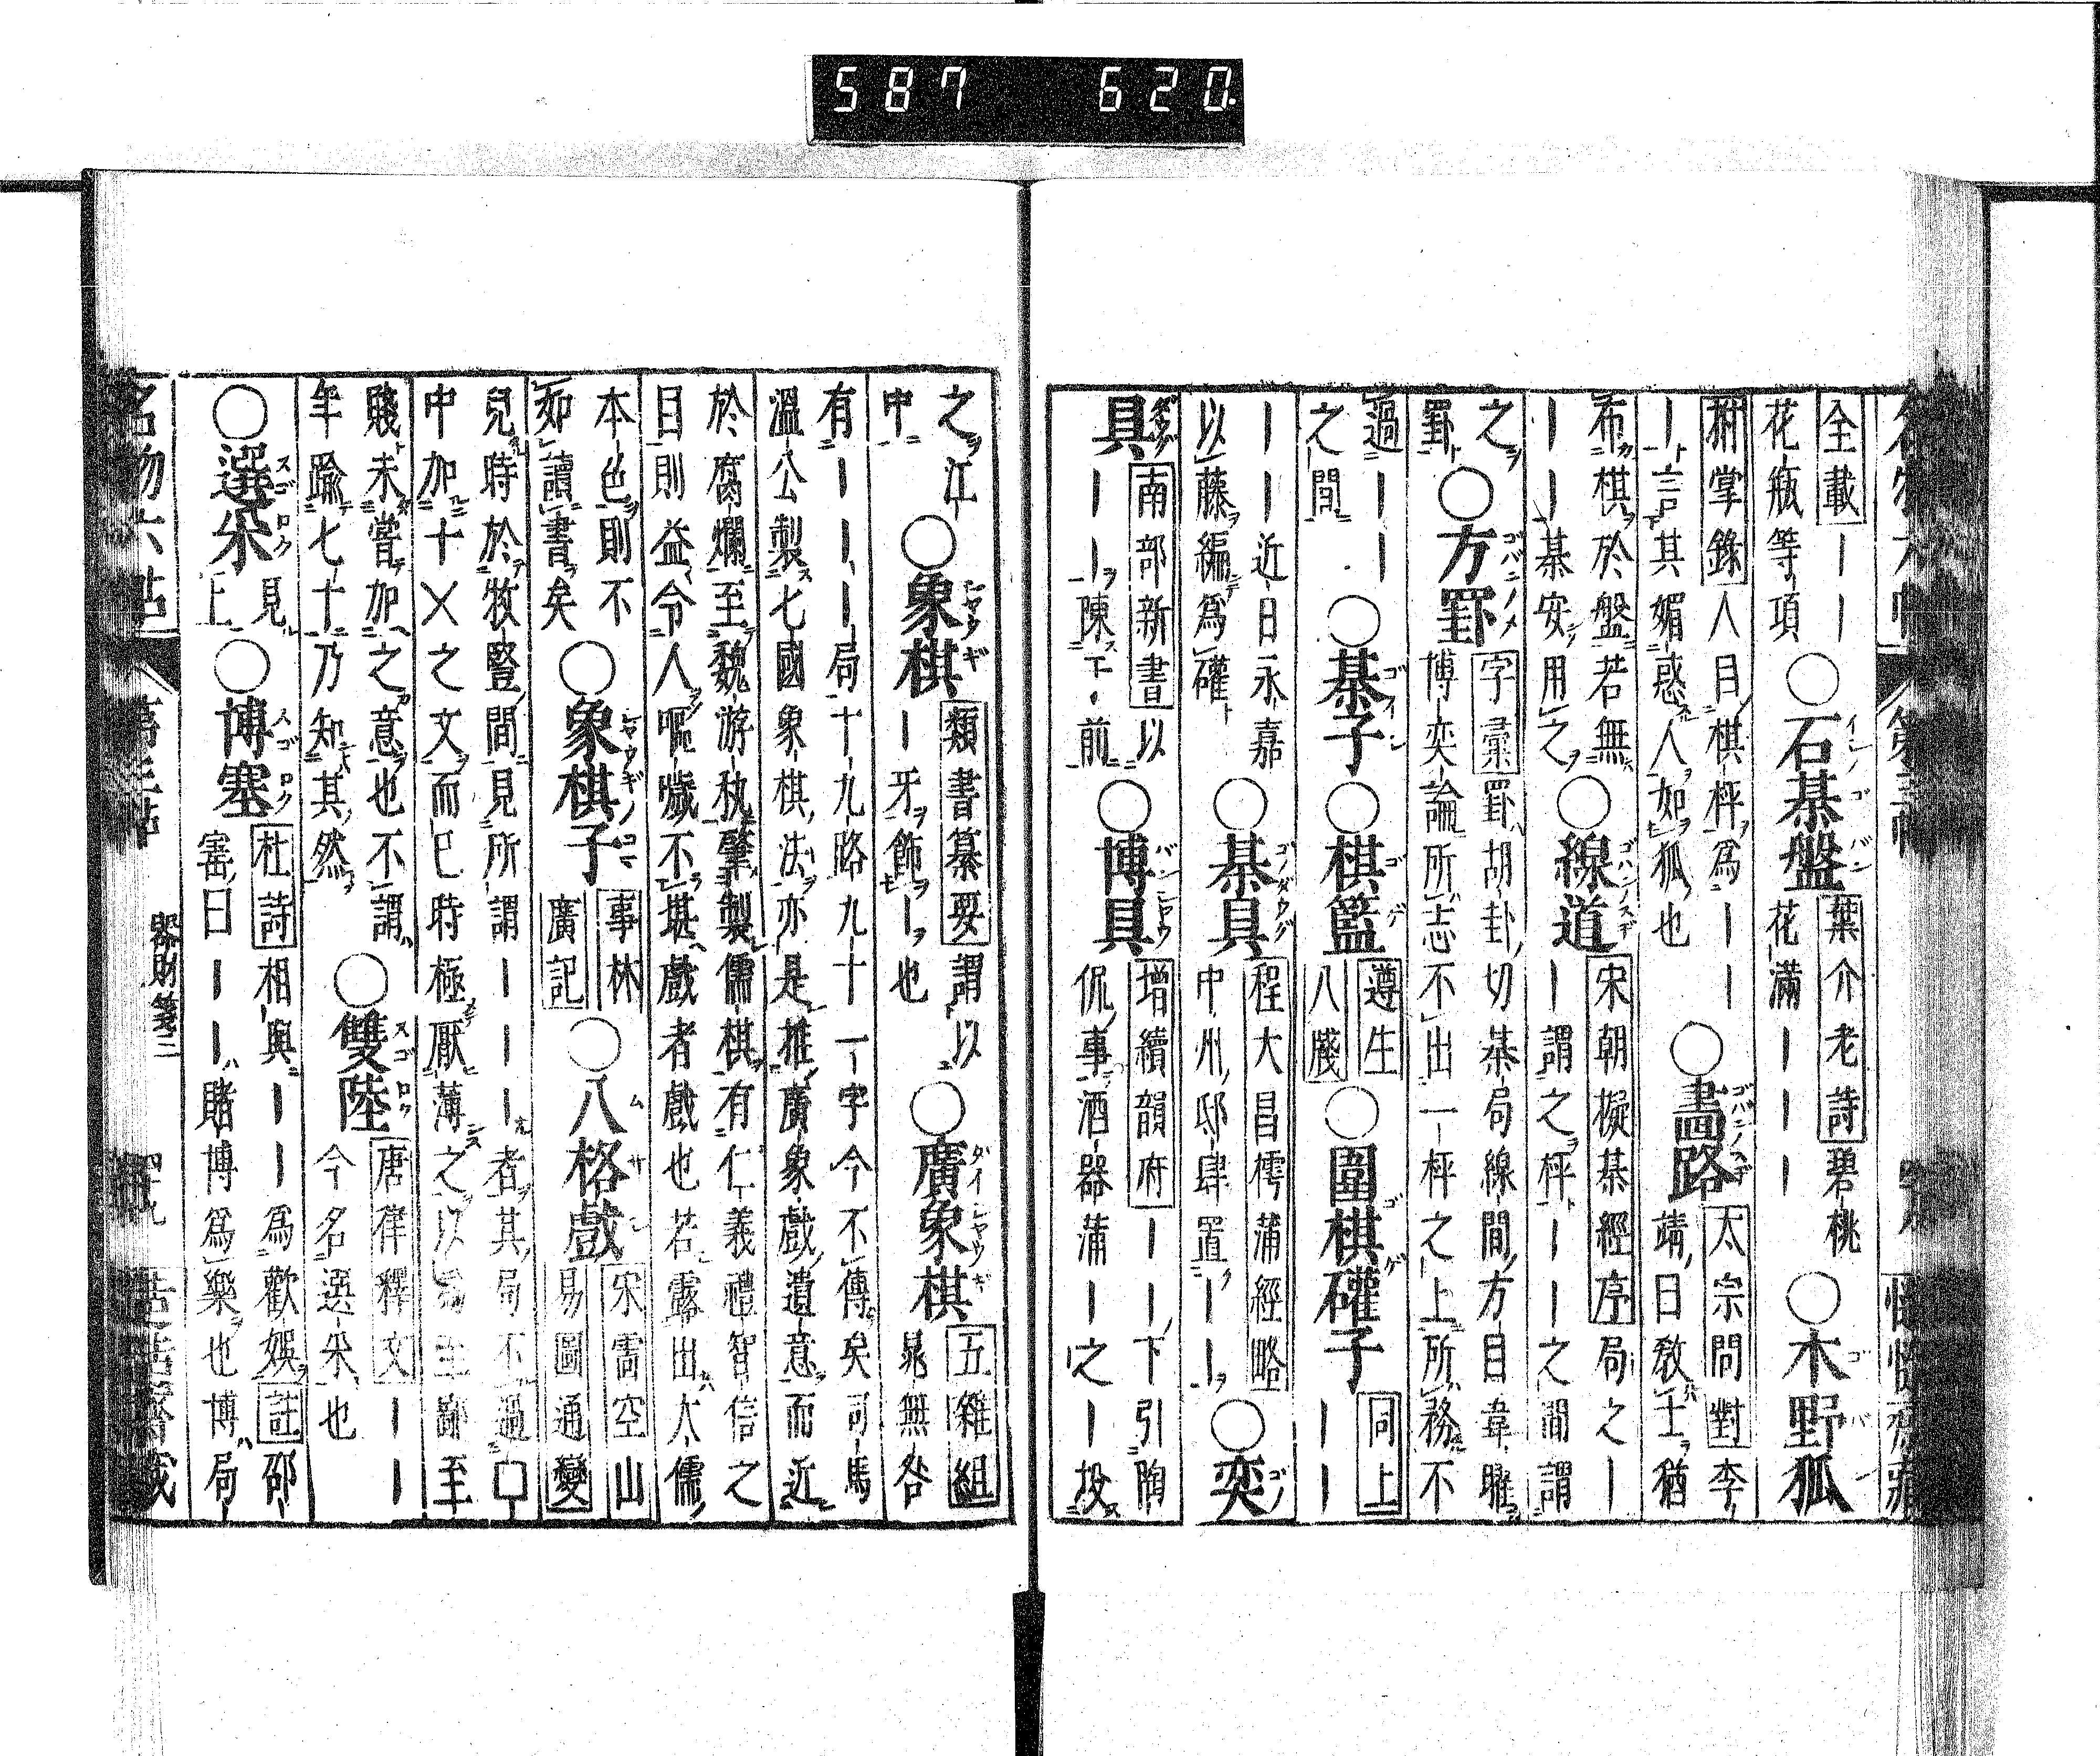 名物六帖　第三帖
全載｜｜花瓶等項○石碁盤葉介老詩碧桃花滿｜｜｜○木野狐
拊掌錄人目棋枰爲｜｜｜言其媚惑人如狐也○畵路太宗問對李靖曰敎士猶
布棋於盤若無｜｜碁安用之○線道宋朝擬碁經序局之｜｜謂之枰｜｜之間謂
之罫○方罫字彙罫胡卦切碁局線間方目韋曜博奕論所志不出一枰之上所務不
過｜｜之間○碁子○棋籃遵生八牋○圍棋礶子同上｜｜
｜｜近日永嘉以藤編爲礶○碁具程大昌樗蒲經略中州邸肆置｜｜○奕
具南部新書以｜｜陳于前○博具增續韻府｜｜下引陶侃事酒器蒲｜之｜投
之江中○象棋類書纂要謂以｜牙飾｜也○廣象棋五雜組晁無咎
有｜｜｜局十九路九十一字今不傳矣司馬溫公製七國象棋法亦是推廣象戲遺意而近
於腐爛至魏游執肇製儒棋有仁義禮智信之目則益令人嘔噦不堪戲者戲也若露出大儒
本色則不如讀書矣○象棋子事林廣記○八格戲宋雩空山易圖通變
兒時於牧豎間見所謂｜｜｜者其局不過囗中加十乂之文而已時極厭薄之以爲至鄙至
賤未嘗加之意也不謂年踰七十乃知其然○雙陸唐律釋文｜｜今名選采也
○選采見上○博塞杜詩相與｜｜爲歡娛註邵窑曰｜｜賭博爲樂也博局
名物六帖　第三帖　器財箋三　四十九
587 620